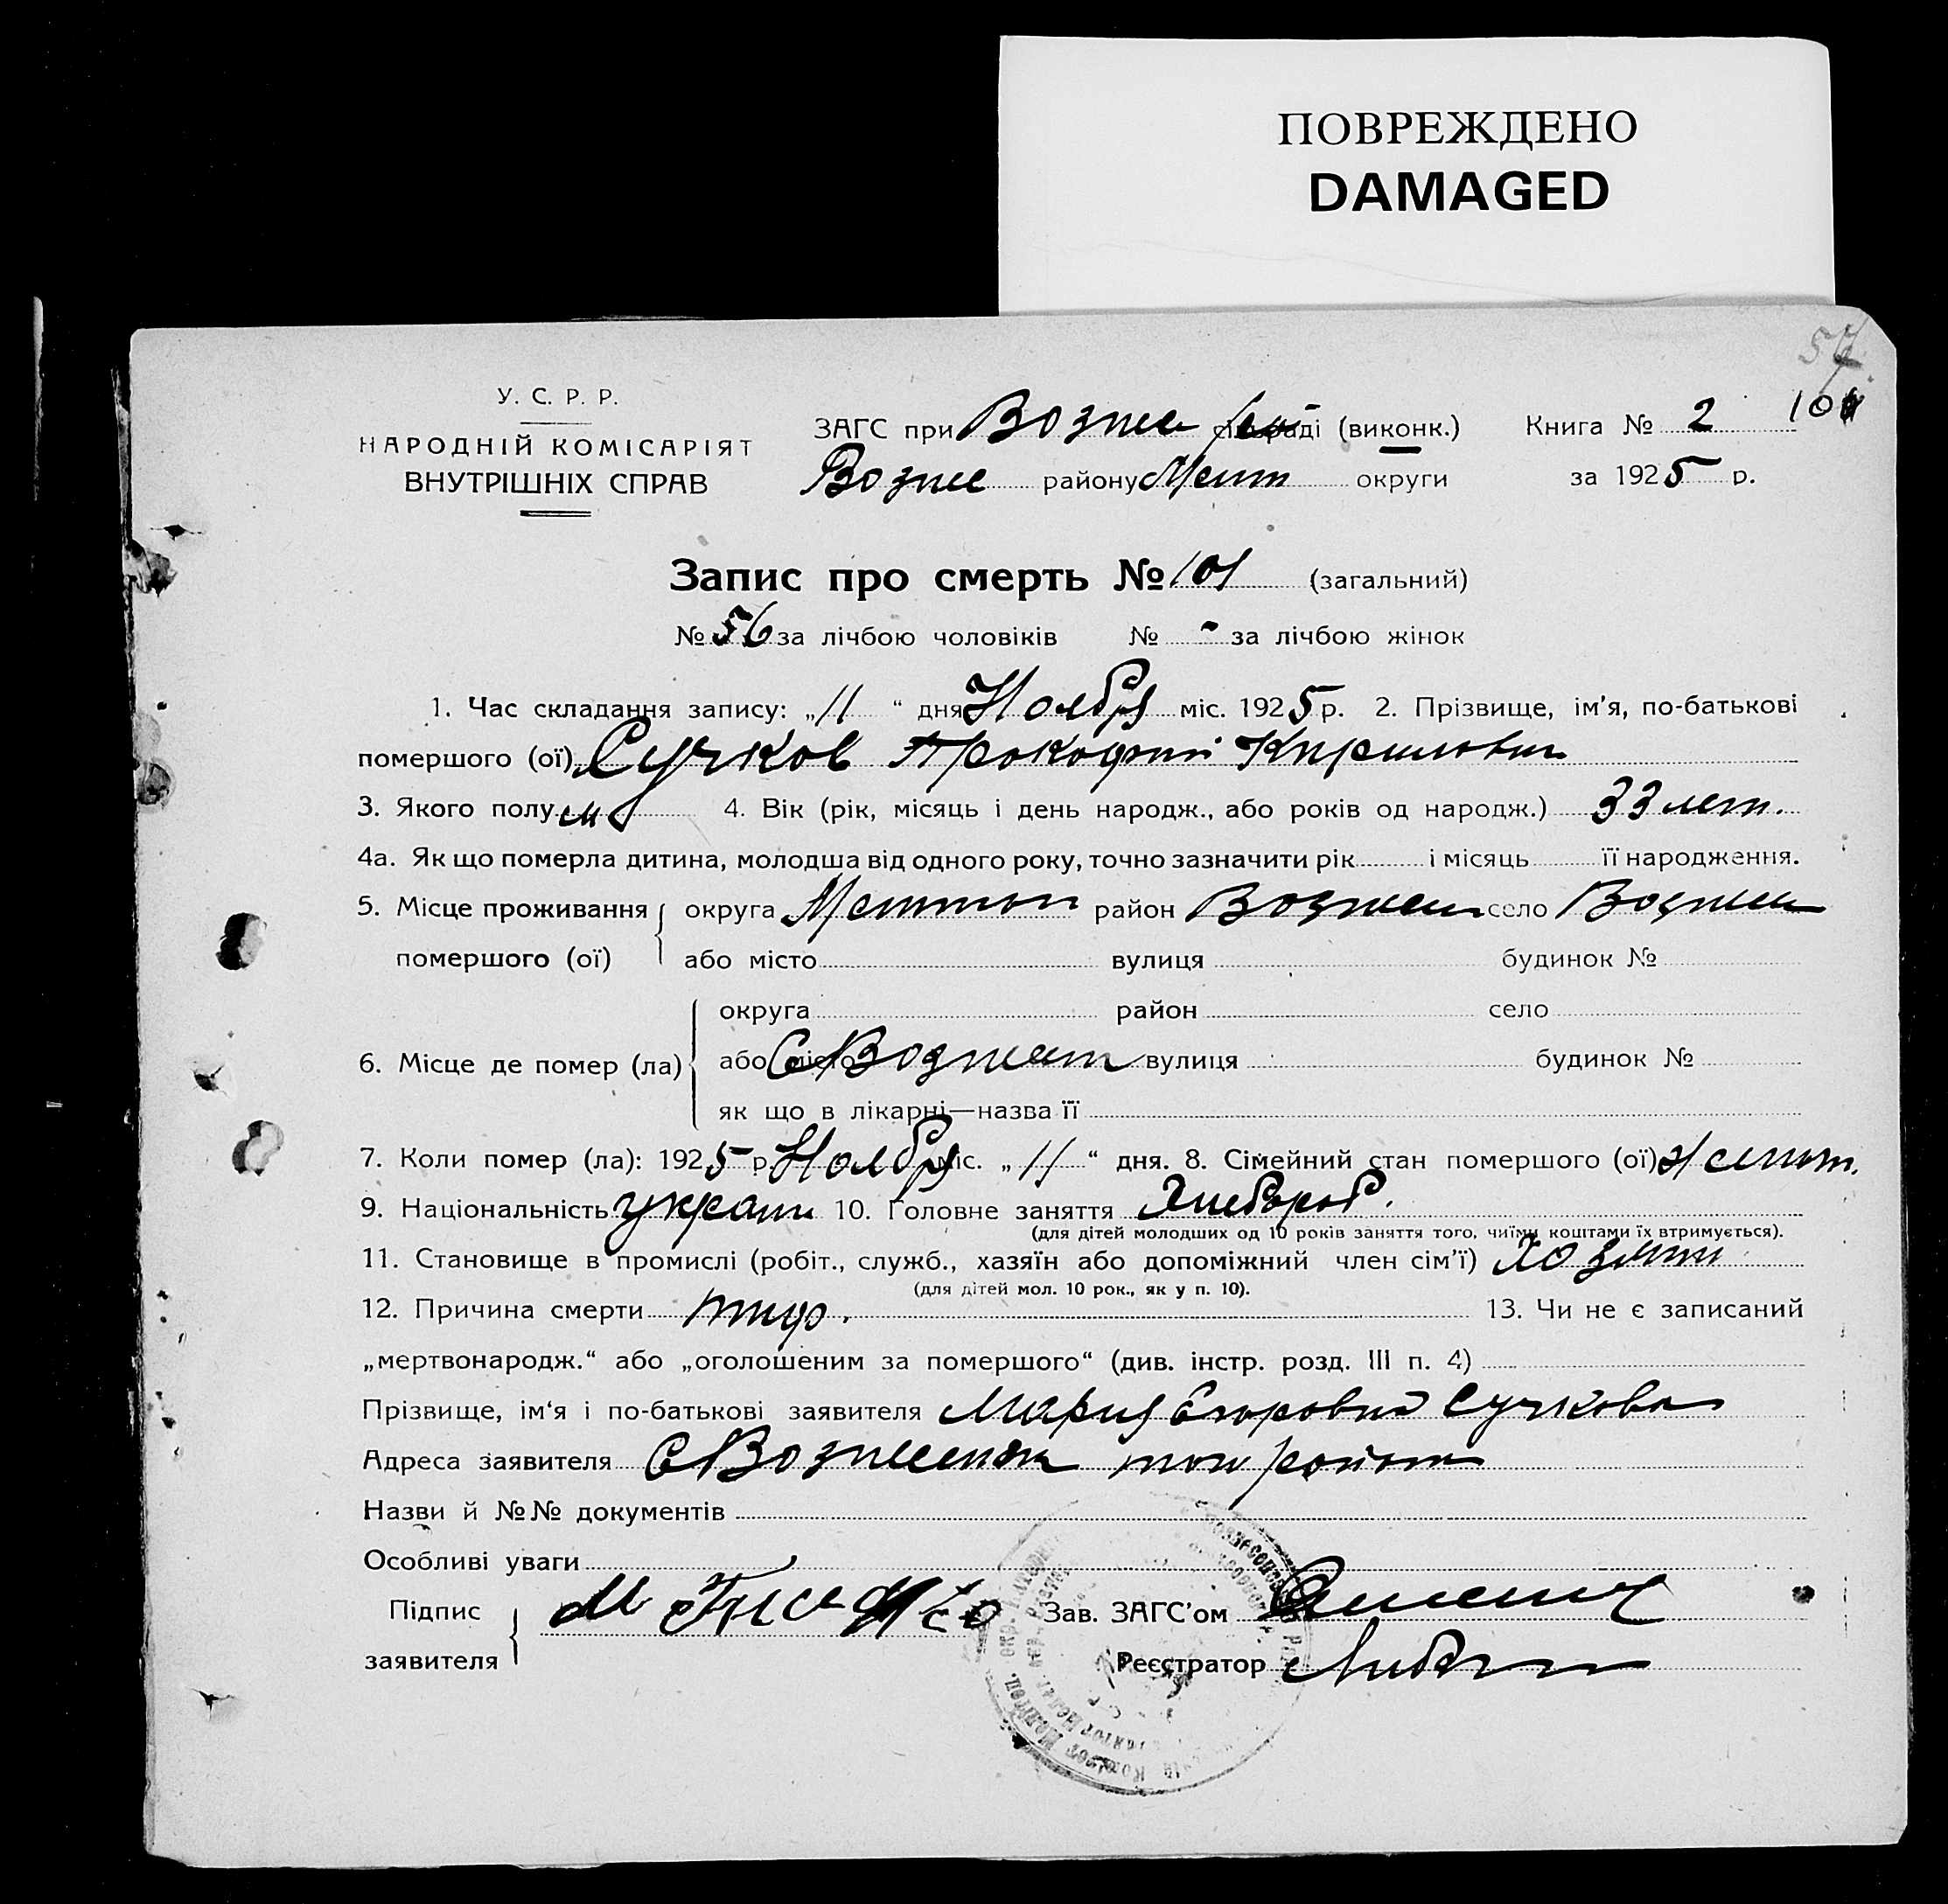 ПОВРЕЖДЕНО
DAMAGED
57
У. С. Р. Р.
НАРОДНІЙ КОМІСАРІЯТ
ВНУТРІШНІХ СПРАВ
ЗАГС при Возне сільраді (виконк.) Книга № 2 101
Возне району Мелит округи за 1925 р.
Запис про смерть № 101 (загальний)
№ 56 за лічбою чоловіків № - за лічбою жінок
1. Час складання запису: „11" дня Ноября міс. 1925 р. 2. Прізвище, ім'я, по-батькові
помершого (ої) Сучков Прокофий Кирилович
3. Якого полу м 4. Вік (рік, місяць і день народж., або років од народж.) 33 лет.
4а. Як що померла дитина, молодша від одного року, точно зазначити рік і місяць її народження.
5. Місце проживання округа район Вознесен село Вознесен
помершого (ої) або місто вулиця будинок №
округа район село
6. Місце де помер (ла) або місто С вулиця будинок №
як що в лікарні—назва її
7. Коли помер (ла): 1925 р. Ноября міс. „11" дня. 8. Сімейний стан помершого (ої) женат.
9. Національність украин 10. Головне заняття хлебороб.
(для дітей молодших од 10 років заняття того, чиїми коштами їх втримується).
11. Становище в промислі (робіт., служб., хазяїн або допоміжний член сім'ї) хозяин
(для дітей мол. 10 рок., як у п. 10).
12. Причина смерти тиф. 13. Чи не є записаний
„мертвонародж." або „оголошеним за помершого" (див. інстр. розд. III п. 4)
Прізвище, ім'я і по-батькові заявителя Мария Егоровна Сучкова
Адреса заявителя С Вознесенка того района
Назви й №№ документів
Особливі уваги
Підпис Зав. ЗАГС'ом
заявителя Реєстратор